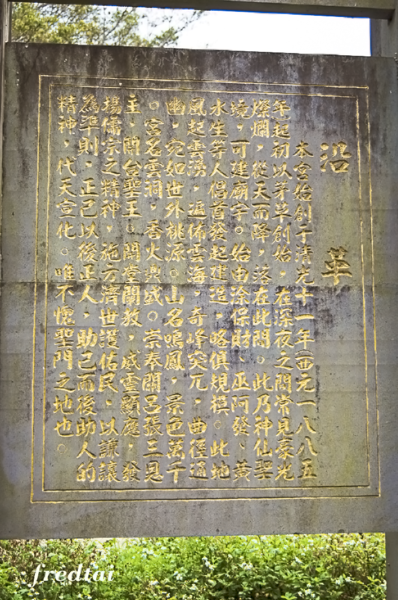 沿革
本宮始創于清光十一年西元一八八五
年起初以茅草創始,在深夜之間常見豪光
燦爛,從天而降,落在此間。此乃神仙聖
境,可建廟宇。始由涂保財、巫阿發、黃
水生等人倡首發起建造,略俱規模。此地
風起雲湧,遍佈雲海,奇峰突兀,曲徑通
幽,宛如世外桃源。山名鳴鳳,景色萬千
。宮名雲洞,香火盛。崇奉關呂張三恩
主,開台聖王。開堂闡教,威靈顯應,發
揚儒宗之精神,施方濟世護佑民,以謙讓
為準則,正己以後正人,助己而後助人的
精神,代天宣化。唯不愧聖門之地也。
fredtai